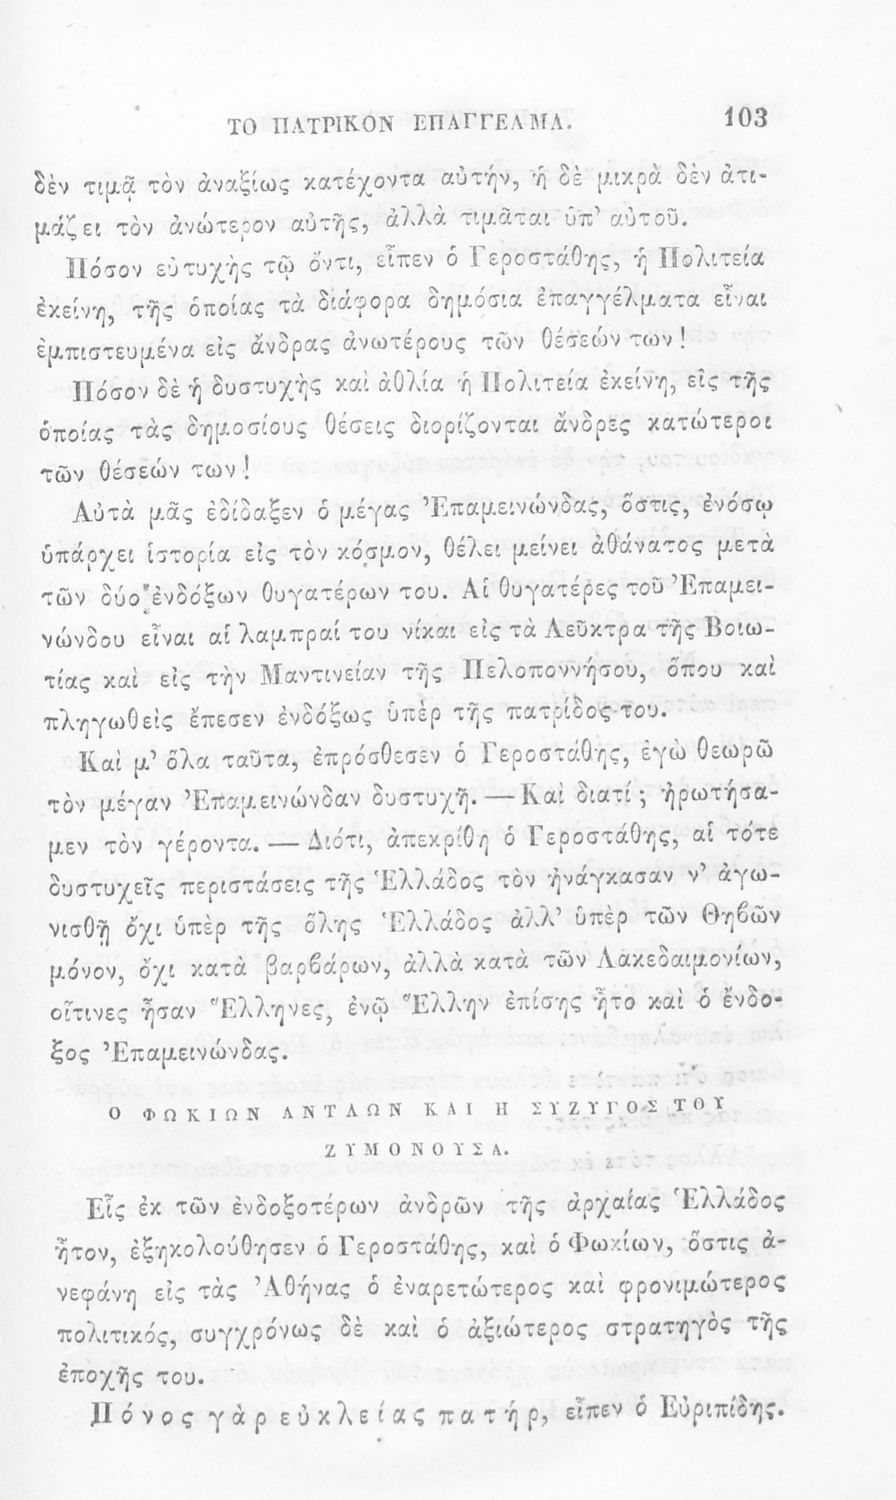 ΤΟ ΠΑΤΡΙΚΟΝ ΕΠΑΓΓΕΛΜΑ. 103
δὲν τιμᾷ τὸν ἀναξίως κατέχοντα αὐτήν, ἡ δὲ μικρὰ δὲν ἀτι-
μάζει τὸν ἀνώτερον αὐτῆς, ἀλλὰ τιμᾶται ὑπ’ αὐτοῦ.
Πόσον εὐτυχὴς τῷ ὄντι, εἶπεν ὁ Γεροστάθης, ἡ Πολιτεία
ἐκείνη, τῆς ὁποίας τὰ διάφορα δημόσια ἐπαγγέλματα εἶναι
ἐμπιστευμένα εἰς ἄνδρας ἀνωτέρους τῶν θέσεών των!
Πόσον δὲ ἡ δυστυχὴς καὶ ἀθλία ἡ Πολιτεία ἐκείνη, εἰς τῆς
ὁποίας τὰς δημοσίους θέσεις διορίζονται ἄνδρες κατώτεροι
τῶν θέσεών των!
Αὐτὰ μᾶς ἐδίδαξεν ὁ μέγας Ἐπαμεινώνδας, ὅστις, ἐνόσῳ
ὑπάρχει ἱστορία εἰς τὸν κόσμον, θέλει μείνει ἀθάνατος μετὰ
τῶν δύο ἐνδόξων θυγατέρων του. Αἱ θυγατέρες τοῦ Ἐπαμει-
νώνδου εἶναι αἱ λαμπραί του νίκαι εἰς τὰ Λεῦκτρα τῆς Βοιω-
τίας καὶ εἰς τὴν Μαντινείαν τῆς Πελοποννήσου, ὅπου καὶ
πληγωθεὶς ἔπεσεν ἐνδόξως ὑπὲρ τῆς πατρίδος του.
Καὶ μ’ ὅλα ταῦτα, ἐπρόσθεσεν ὁ Γεροστάθης, ἐγὼ θεωρῶ
τὸν μέγαν Ἐπαμεινώνδαν δυστυχῆ. — Καὶ διατί; ἠρωτήσα-
μεν τὸν γέροντα. — Διότι, ἀπεκρίθη ὁ Γεροστάθης, αἱ τότε
δυστυχεῖς περιστάσεις τῆς Ἑλλάδος τὸν ἠνάγκασαν ν’ ἀγω-
νισθῇ ὄχι ὑπὲρ τῆς ὅλης Ἑλλάδος ἀλλ’ ὑπὲρ τῶν Θηβῶν
μόνον, ὄχι κατὰ βαρβάρων, ἀλλὰ κατὰ τῶν Λακεδαιμονίων,
οἵτινες ἦσαν Ἕλληνες, ἐνῷ Ἕλλην ἐπίσης ἦτο καὶ ὁ ἔνδο-
ξος Ἐπαμεινώνδας.
Ο ΦΩΚΙΩΝ ΑΝΤΛΩΝ ΚΑΙ Η ΣΥΖΥΓΟΣ ΤΟΥ
ΖΥΜΟΝΟΥΣΑ.
Εἷς ἐκ τῶν ἐνδοξοτέρων ἀνδρῶν τῆς ἀρχαίας Ἑλλάδος
ἦτον, ἐξηκολούθησεν ὁ Γεροστάθης, καὶ ὁ Φωκίων, ὅστις ἀ-
νεφάνη εἰς τὰς Ἀθήνας ὁ ἐναρετώτερος καὶ φρονιμώτερος
πολιτικός, συγχρόνως δὲ καὶ ὁ ἀξιώτερος στρατηγὸς τῆς
ἐποχῆς του.
Πόνος γὰρ εὐκλείας πατήρ, εἶπεν ὁ Εὐριπίδης.